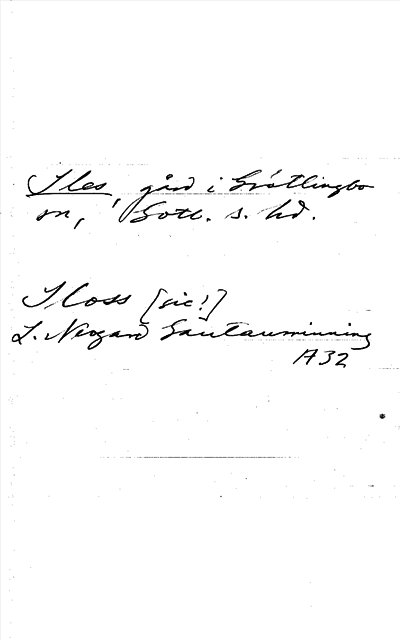 Iles, gård i Grötlingbo
sn, Gotl. s. hd.
Iloss [sic!]
L. Neogard Gautauminning
A32